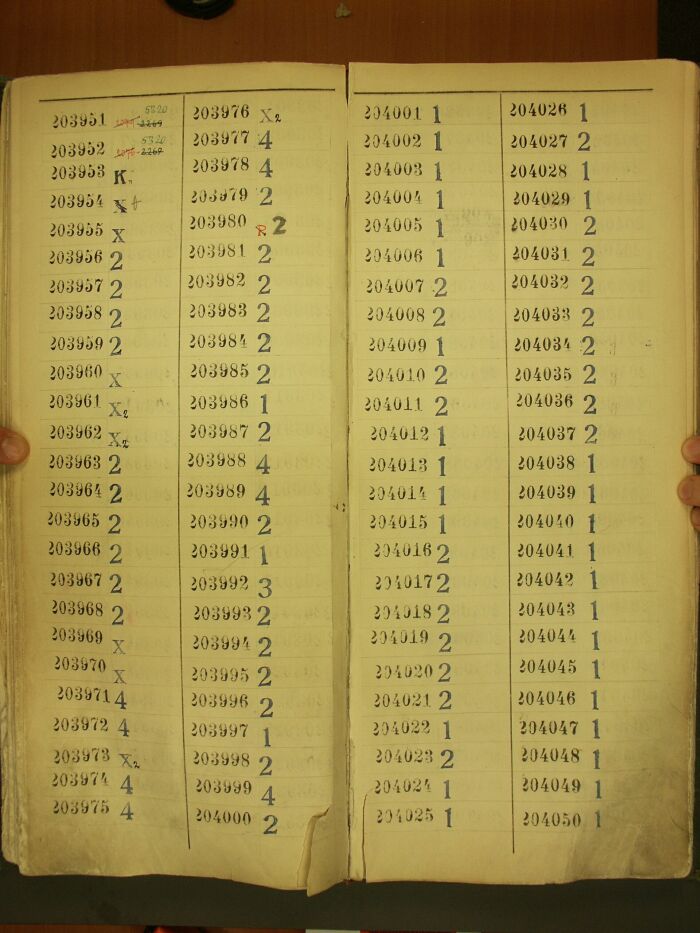 203951 5320 2269
203952 5320 2269
203953 K
203954 X
203955 X
203956 2
203957 2
203958 2
203959 2
203960 X
203961 X2
203962 X2
203963 2
203964 2
203965 2
203966 2
203967 2
203968 2
203969 X
203970 X
203971 4
203972 4
203973 X2
203974 4
203975 4
203976 X2
203977 4
203978 4
203979 2
203980 R 2
203981 2
203982 2
203983 2
203984 2
203985 2
203986 1
203987 2
203988 4
203989 4
203990 2
203991 1
203992 3
203993 2
203994 2
203995 2
203996 2
203997 1
203998 2
203999 4
204000 2
204001 1
204002 1
204003 1
204004 1
204005 1
204006 1
204007 2
204008 2
204009 1
204010 2
204011 2
204012 1
204013 1
204014 1
204015 1
204016 2
204017 2
204018 2
204019 2
204020 2
204021 2
204022 1
204023 2
204024 1
204025 1
204026 1
204027 2
204028 1
204029 1
204030 2
204031 2
204032 2
204033 2
204034 2
204035 2
204036 2
204037 2
204038 1
204039 1
204040 1
204041 1
204042 1
204043 1
204044 1
204045 1
204046 1
204047 1
204048 1
204049 1
204050 1